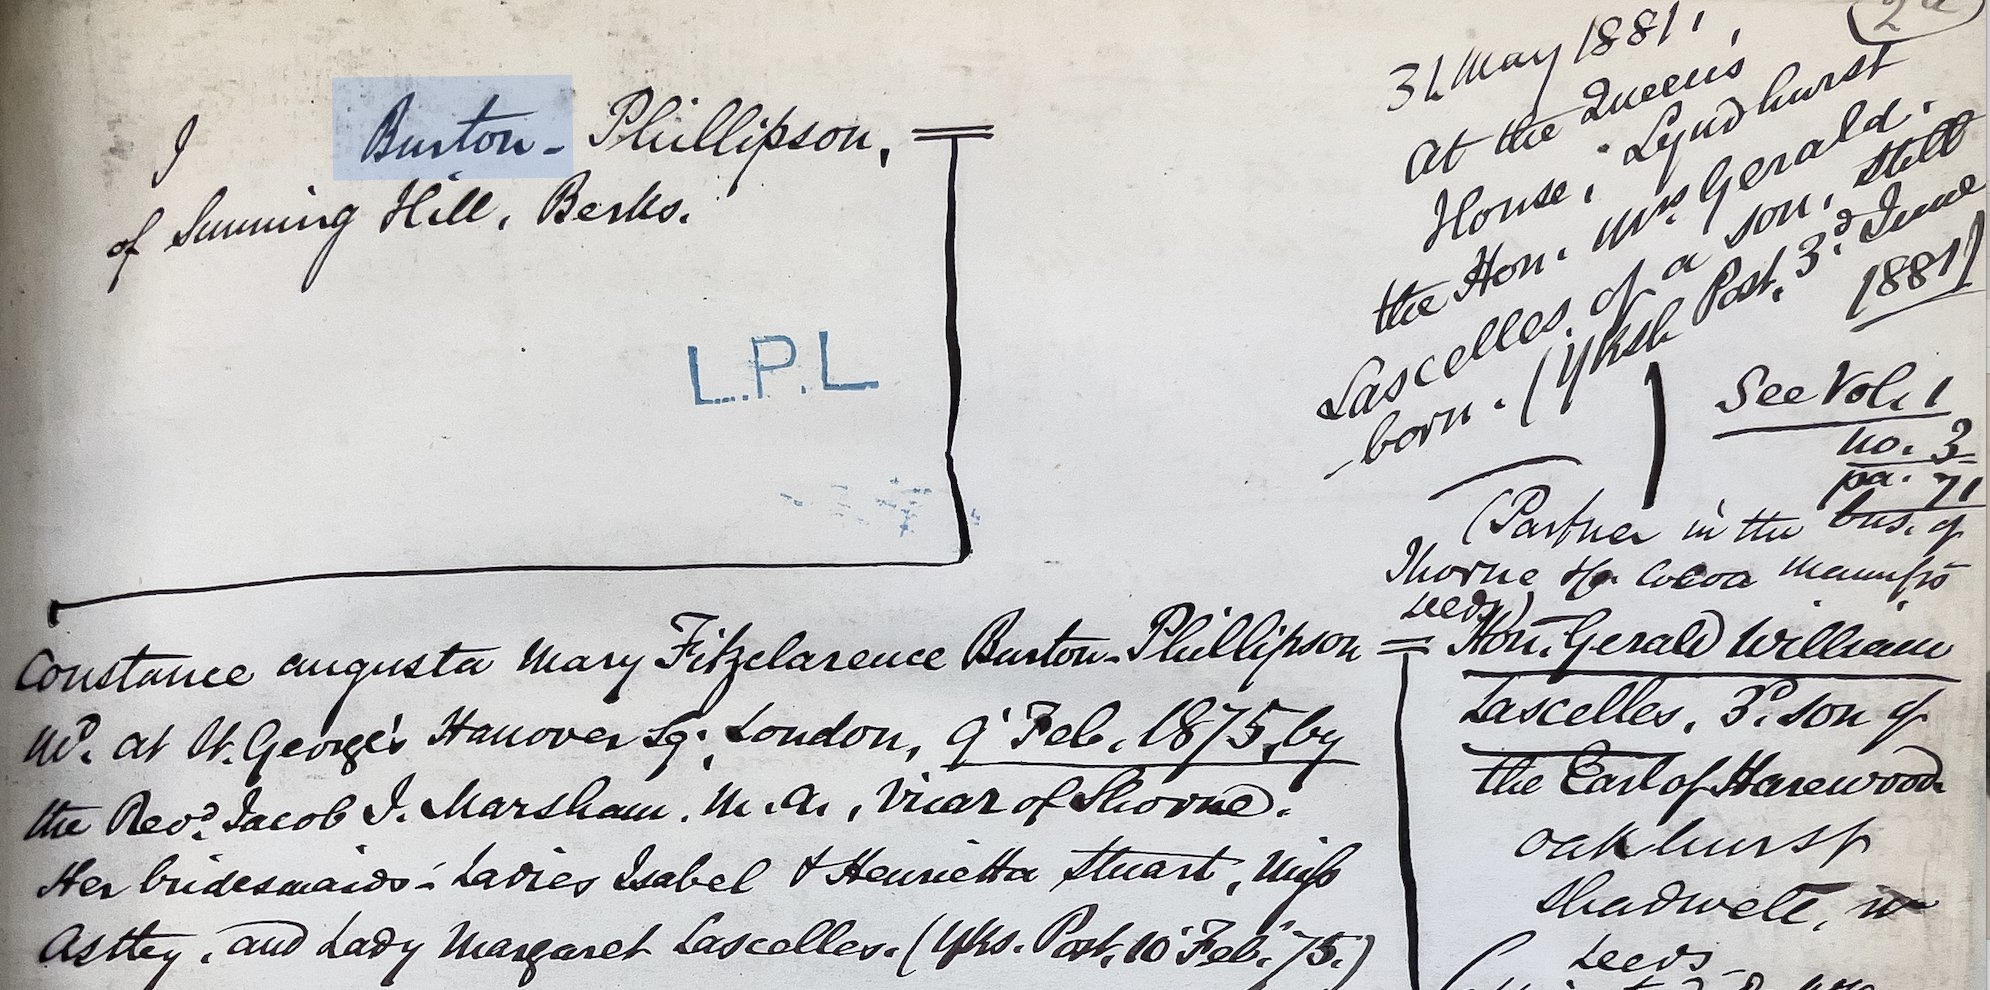 J Burton-Phillipson,
of Sunning Hill, Berks.
L.P.L
31 May 1881,
At the Queen's
House, Lyndhurst
the Hon. Mrs Gerald
Lascelles of a son, still
-born. (Yksh Post, 3d June
1881)
See Vol. 1
no. 3
pa. 71
(Partner in the bus. of
Thorne & Co Cocoa manufrs
Leeds)
Constance Augusta Mary Fitzclarence Burton-Phillipson = Hon. Gerald William
Lascelles, 3d. son of
the Earl of Harewood
Oakhurst
Shadwell, nr
Leeds
Md. at St. George's Hanover Sq. London, 9 Feb. 1875, by
the Revd. Jacob J. Marsham. M.A., Vicar of Shorne.
Her bridesmaids - Ladies Isabel & Henrietta Stuart, Miss
Astley, and Lady Margaret Lascelles. (Yks. Post, 10 Feb. 75.)